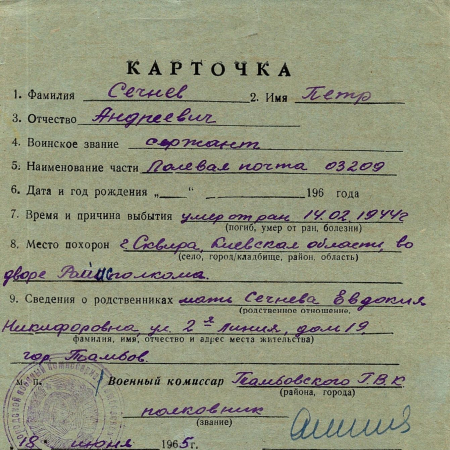 КАРТОЧКА
1. Фамилия Сечнев 2. Имя Петр
3. Отчество Андреевич
4. Воинское звание сержант
5. Наименование части Полевая почта 03209
6. Дата и год рождения „ “ 196 года
7. Время и причина выбытия умер от ран 14.02.1944г
(погиб, умер от ран, болезни)
8. Место похорон г. Сквира, Киевская область, во
(село, город/кладбище, район, область)
дворе Райисполкома.
9. Сведения о родственниках мать Сечнева Евдокия
(родственное отношение,
Никифоровна, ул. 2я Линия, дом 19,
фамилия, имя, отчество и адрес места жительства)
гор. Тамбов.
М. П. Военный комиссар Тамбовского Г.В.К
(района, города)
полковник
(звание)
18 июня 1965г.